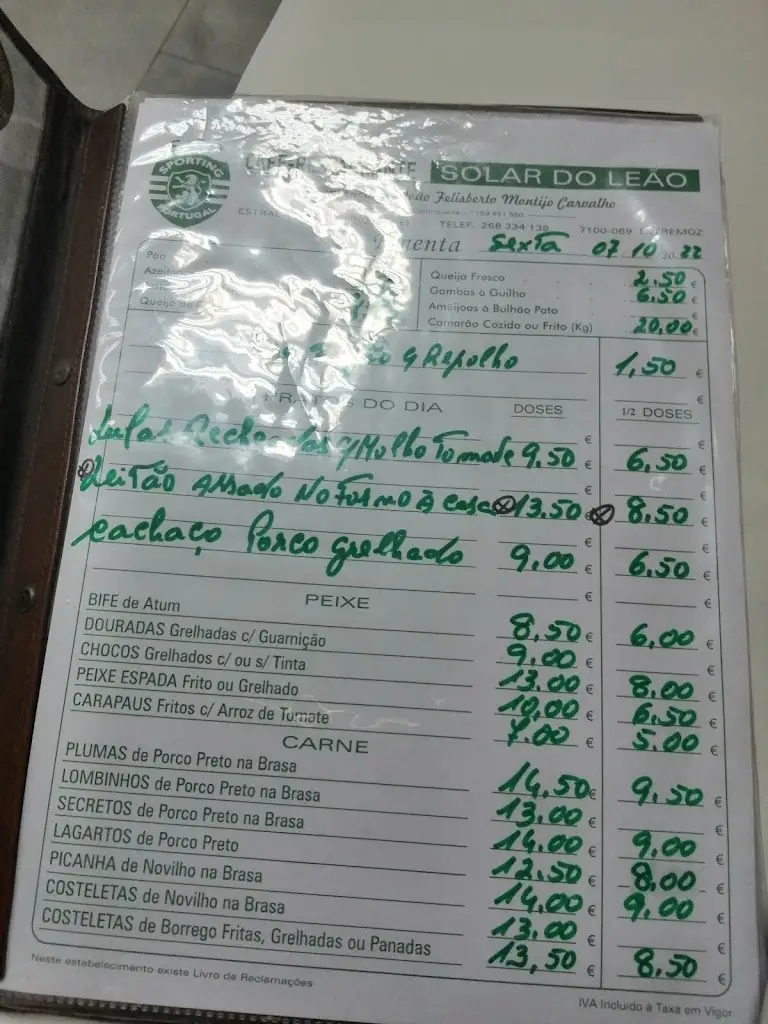 SPORTING
PORTUGAL
SOLAR DO LEÃO
João Felisberto Montijo Carvalho
TELEF. 268 334 138 7100-069 ESTREMOZ
Ementa Sexta 07 10 2022
Pão
Queijo Fresco 2,50 €
Gambas à Guilho 6,50 €
Ameijoas à Bulhão Pato €
Camarão Cozido ou Frito (Kg) 20,00 €
Repolho 1,50 €
PRATOS DO DIA DOSES 1/2 DOSES
Lulas Recheadas c/ Molho Tomate 9,50 € 6,50 €
Leitão Assado No Forno à Casa 13.50 € 8,50 €
Cachaço Porco grelhado 9,00 € 6,50 €
PEIXE
BIFE de Atum 8,50 € 6,00 €
DOURADAS Grelhadas c/ Guarnição 9,00 €
CHOCOS Grelhados c/ ou s/ Tinta 13.00 € 8,00 €
PEIXE ESPADA Frito ou Grelhado 10,00 € 6,50 €
CARAPAUS Fritos c/ Arroz de Tomate 7.00 € 5.00 €
CARNE
PLUMAS de Porco Preto na Brasa 14,50 € 9,50 €
LOMBINHOS de Porco Preto na Brasa 13,00 €
SECRETOS de Porco Preto na Brasa 14,00 € 9,00 €
LAGARTOS de Porco Preto 12,50 € 8,00 €
PICANHA de Novilho na Brasa 14,00 € 9,00 €
COSTELETAS de Novilho na Brasa 13,00 €
COSTELETAS de Borrego Fritas, Grelhadas ou Panadas 13,50 € 8,50 €
Neste estabelecimento existe Livro de Reclamações
IVA Incluido à Taxa em Vigor